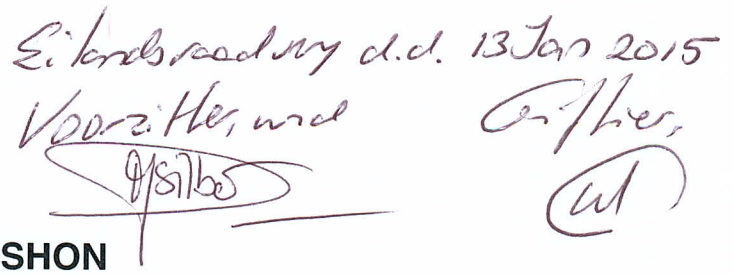 Eilandsraad svrg d.d. 13 Jan 2015
Voorzitter, wnd Griffier,
SHON